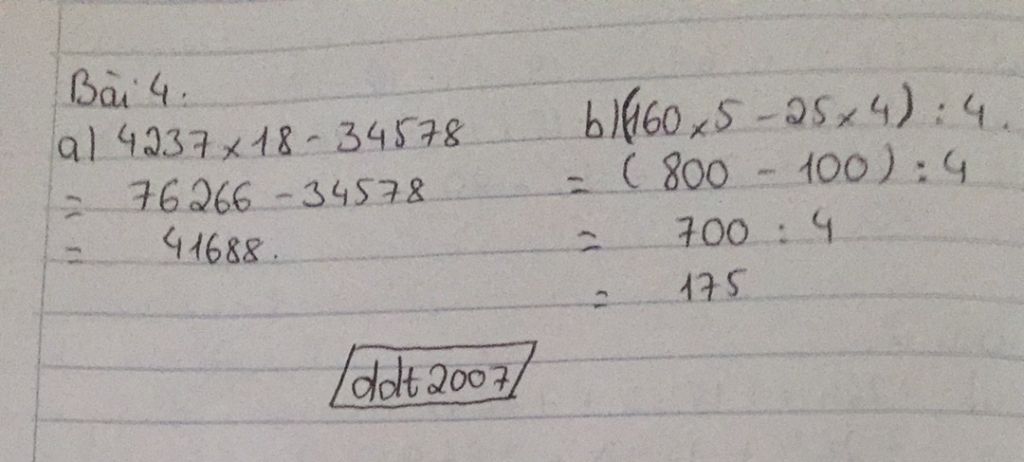 Bài 4.
a) 4237 x 18 - 34578
= 76266 - 34578
= 41688.
b) (160 x 5 - 25 x 4) : 4.
= (800 - 100) : 4
= 700 : 4
= 175
ddt2007